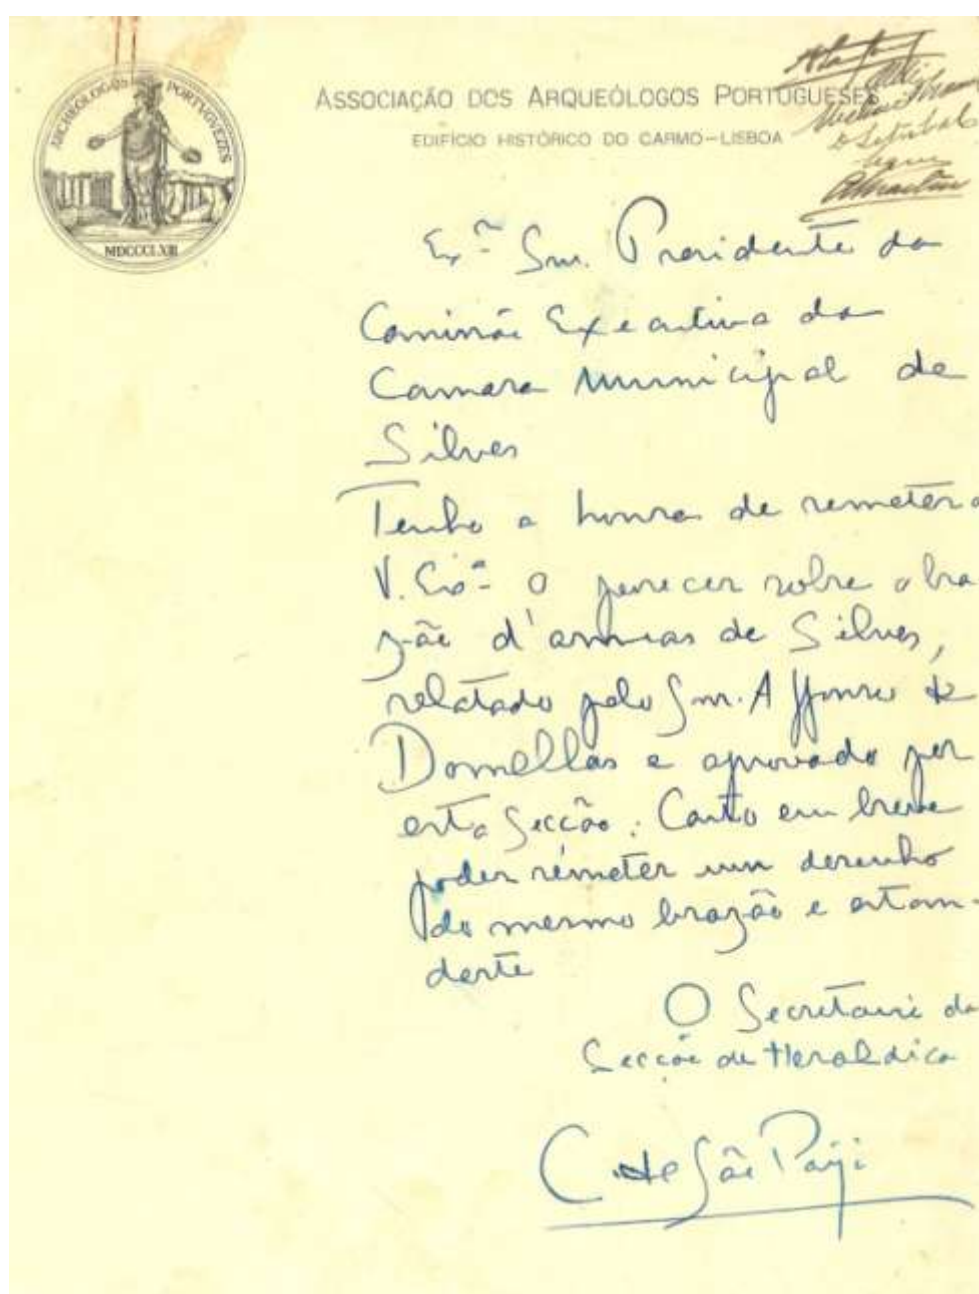 ARCHEOLOGOS PORTVGVEZES
MDCCCLXIII
ASSOCIAÇÃO DOS ARQUEÓLOGOS PORTUGUESES
EDIFÍCIO HISTÓRICO DO CARMO-LISBOA
Ex.º Snr. Presidente da
Comissão Executiva da
Camara Municipal de
Silves
Tenho a honra de remeter a
V. Exª o parecer sobre o bra
zão d'armas de Silves,
relatado pelo Snr. Affonso de
Dornellas e aprovado por
esta Secção. Conto em breve
poder remeter um desenho
do mesmo brazão e estan-
darte
O Secretario da
Secção de Heraldica
C. de São Payo